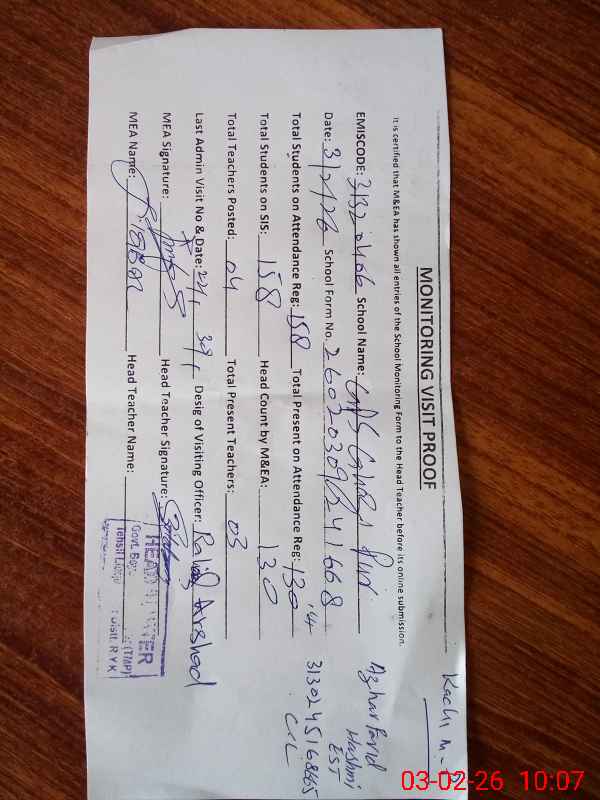 Kachi M
MONITORING VISIT PROOF
It is certified that M&EA has shown all entries of the School Monitoring Form to the Head Teacher before its online submission.
EMISCODE: 31320406 School Name: GPS
Date: 3/2/26 School Form No. 260203091241668
Total Students on Attendance Reg: 158 Total Present on Attendance Reg: 130
Total Students on SIS: 158 Head Count by M&EA: 130
Total Teachers Posted: 04 Total Present Teachers: 03
Last Admin Visit No & Date: Desig of Visiting Officer: Arshad
MEA Signature: Head Teacher Signature:
MEA Name: Head Teacher Name:
Azhar Farid
Hashmi
EST
C-L
HEAD
Govt. Boy
Tehsil (TMP)
Distt. R Y K
03-02-26 10:07